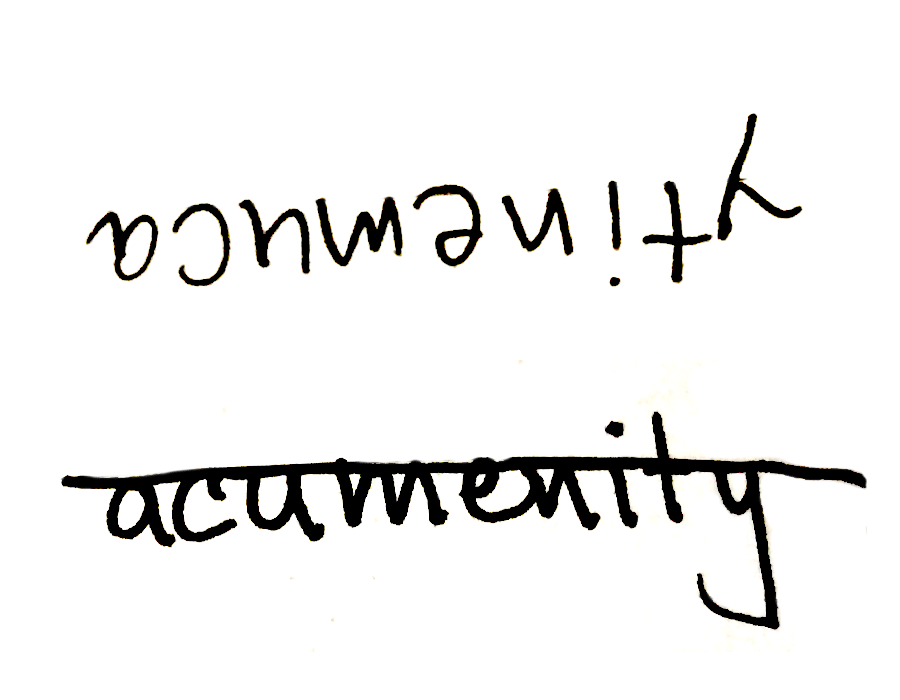 acumenity
acumenity